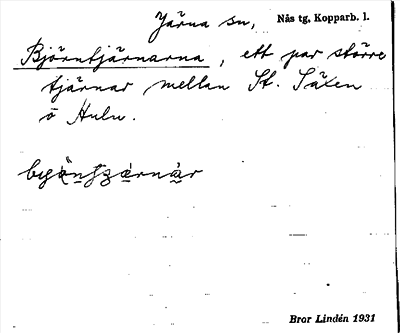 Järna sn, Nås tg, Kopparb. l.
Björntjärnarna, ett par större
tjärnar mellan St. Säxen
o Hulu.
Bror Lindén 1931